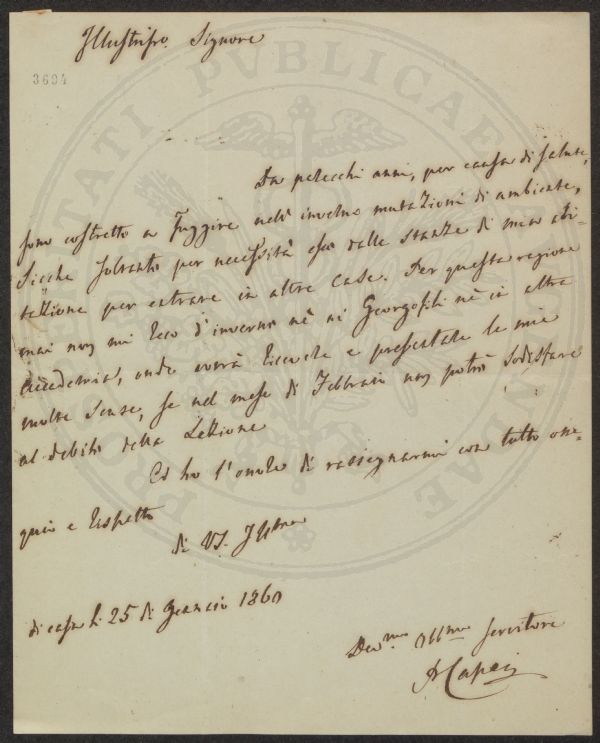 Illustriss.o Signore
3694
PROSPERITATI PUBLICAE AUGENDAE
Da parecchi anni, per causa di salute,
sono costretto a fuggire nell' inverno mutazioni di ambiente,
Sicchè soltanto per necessità esco dalle stanze di mia abi-
tazione per entrare in altre case. Per questa ragione
mai non mi reco d'inverno nè ai Georgofili nè in altra
Accademia, onde vorrà ricevere e presentare le mie
molte scuse, se nel mese di Febbraio non potrò sodisfare
al debito della Lezione
Ed ho l'onore di rassegnarmi con tutto osse-
quio e rispetto
di VS. Illma
di casa li 25 di Gennaio 1860
Dev.mo Obb.mo servitore
Capei